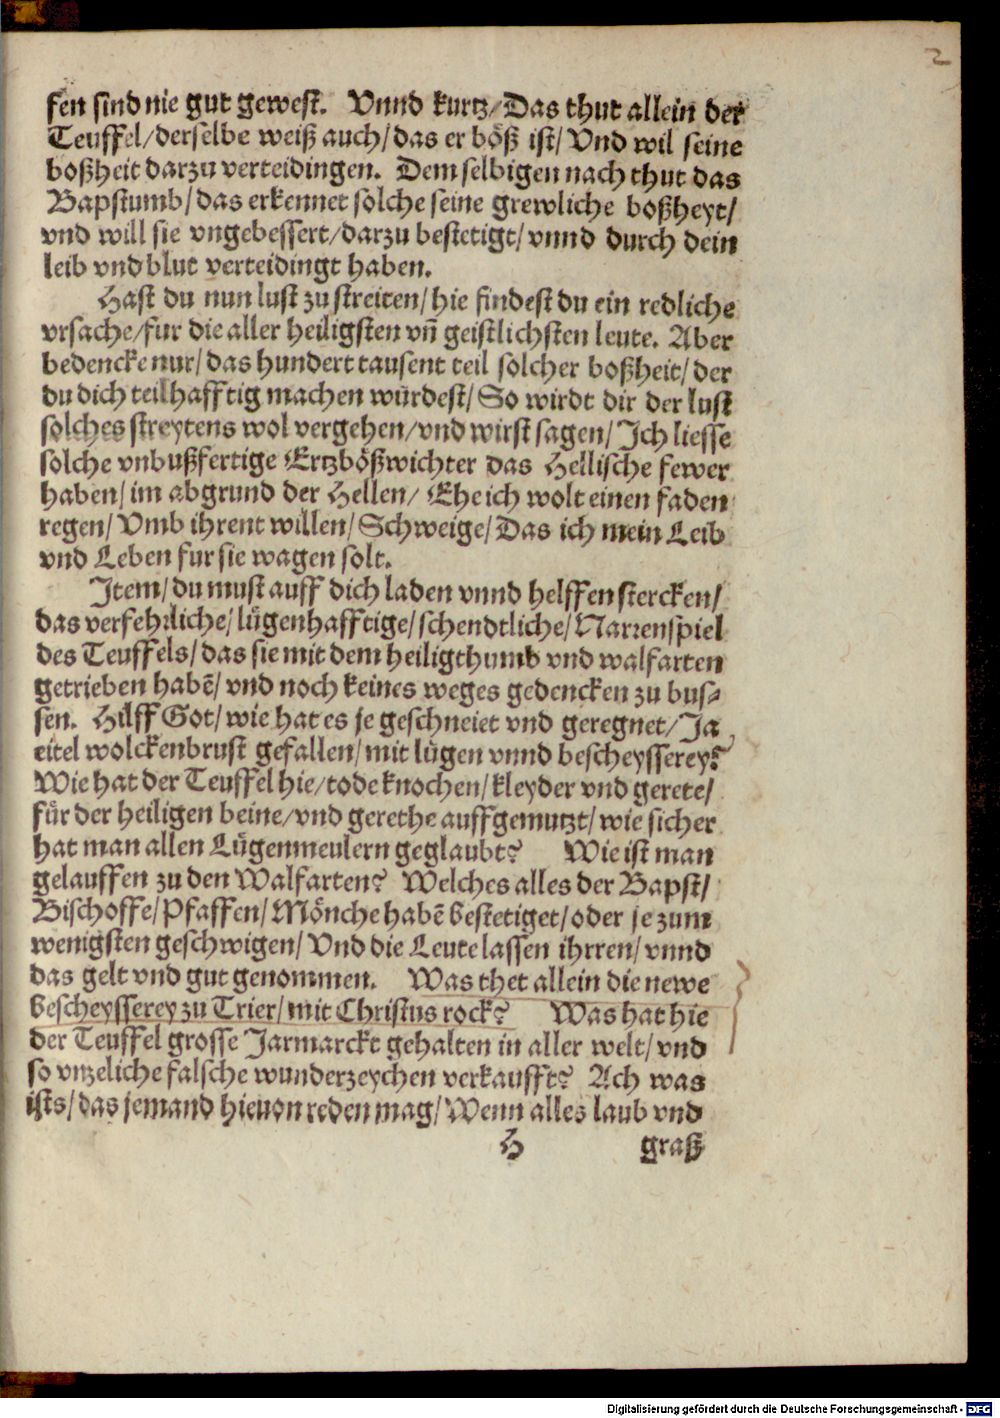 2
fen sind nie gut gewest. Vnnd kurtz/Das thut allein der
Teuffel/derselbe weiß auch/das er böß ist/Vnd wil seine
boßheit darzu verteidingen. Dem selbigen nach thut das
Bapstumb/das erkennet solche seine grewliche boßheyt/
vnd will sie vngebessert/darzu bestetigt/vnnd durch dein
leib vnd blut verteidingt haben.
Hast du nun lust zu streiten/hie findest du ein redliche
vrsache/fur die aller heiligsten vñ geistlichsten leute. Aber
bedencke nur/das hundert tausent teil solcher boßheit/der
du dich teilhafftig machen würdest/So wirdt dir der lust
solches streytens wol vergehen/vnd wirst sagen/Ich liesse
solche vnbußfertige Ertzbößwichter das Hellische fewer
haben/im abgrund der Hellen/Ehe ich wolt einen faden
regen/Vmb ihrent willen/Schweige/Das ich mein Leib
vnd Leben fur sie wagen solt.
Item/du must auff dich laden vnnd helffen stercken/
das verfehrliche/lügenhafftige/schendtliche/Narrenspiel
des Teuffels/das sie mit dem heiligthumb vnd walfarten
getrieben habẽ/vnd noch keines weges gedencken zu bus⸗
sen. Hilff Got/wie hat es je geschneiet vnd geregnet/Ja
eitel wolckenbrust gefallen/mit lügen vnnd bescheysserey?
Wie hat der Teuffel hie/tode knochen/kleyder vnd gerete/
für der heiligen beine/vnd gerethe auffgemutzt/wie sicher
hat man allen Lügenmeulern geglaubt? Wie ist man
gelauffen zu den Walfarten? Welches alles der Bapst/
Bischoffe/Pfaffen/Mönche habẽ bestetiget/oder je zum
wenigsten geschwigen/Vnd die Leute lassen ihrren/vnnd
das gelt vnd gut genommen. Was thet allein die newe
bescheysserey zu Trier/mit Christus rock? Was hat hie
der Teuffel grosse Jarmarckt gehalten in aller welt/vnd
so vnzeliche falsche wunderzeychen verkaufft? Ach was
ists/das jemand hieuon reden mag/Wenn alles laub vnd
H graß
Digitalisierung gefördert durch die Deutsche Forschungsgemeinschaft - DFG